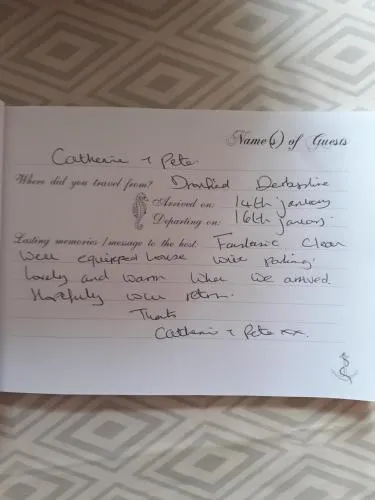 Name(s) of Guests
Catherine + Pete.
Where did you travel from? Dronfield Derbyshire
Arrived on: 14th january
Departing on: 16th january.
Lasting memories / message to the host: Fantastic Clean
Well equipped house with parking.
Lovely and warm when we arrived.
Hopefully will return.
Thanks
Catherine + Pete xx.